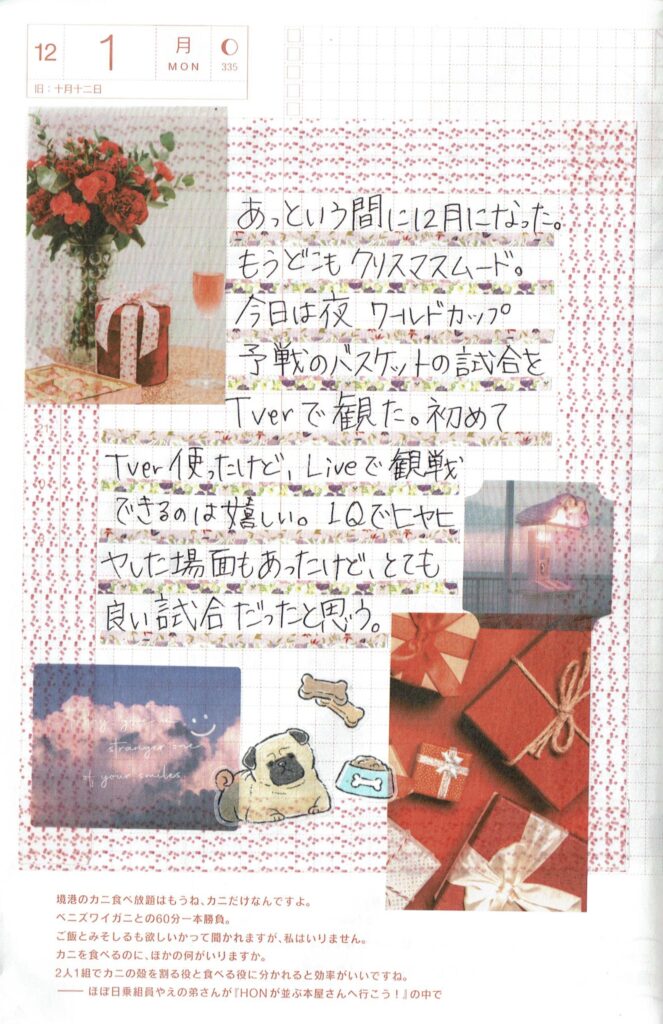 12 1 月 MON 335
旧：十月十二日
あっという間に12月になった。
もうどこもクリスマスムード。
今日は夜 ワールドカップ
予戦のバスケットの試合を
Tverで観た。初めて
Tver使ったけど、Liveで観戦
できるのは嬉しい。1Qでヒヤヒ
ヤした場面もあったけど、とても
良い試合だったと思う。
stranger one
of your smiles.
境港のカニ食べ放題はもうね、カニだけなんですよ。
ベニズワイガニとの60分一本勝負。
ご飯とみそしるも欲しいかって聞かれますが、私はいりません。
カニを食べるのに、ほかの何がいりますか。
2人1組でカニの殻を割る役と食べる役に分かれると効率がいいですね。
―― ほぼ日乗組員やえの弟さんが『HONが並ぶ本屋さんへ行こう！』の中で